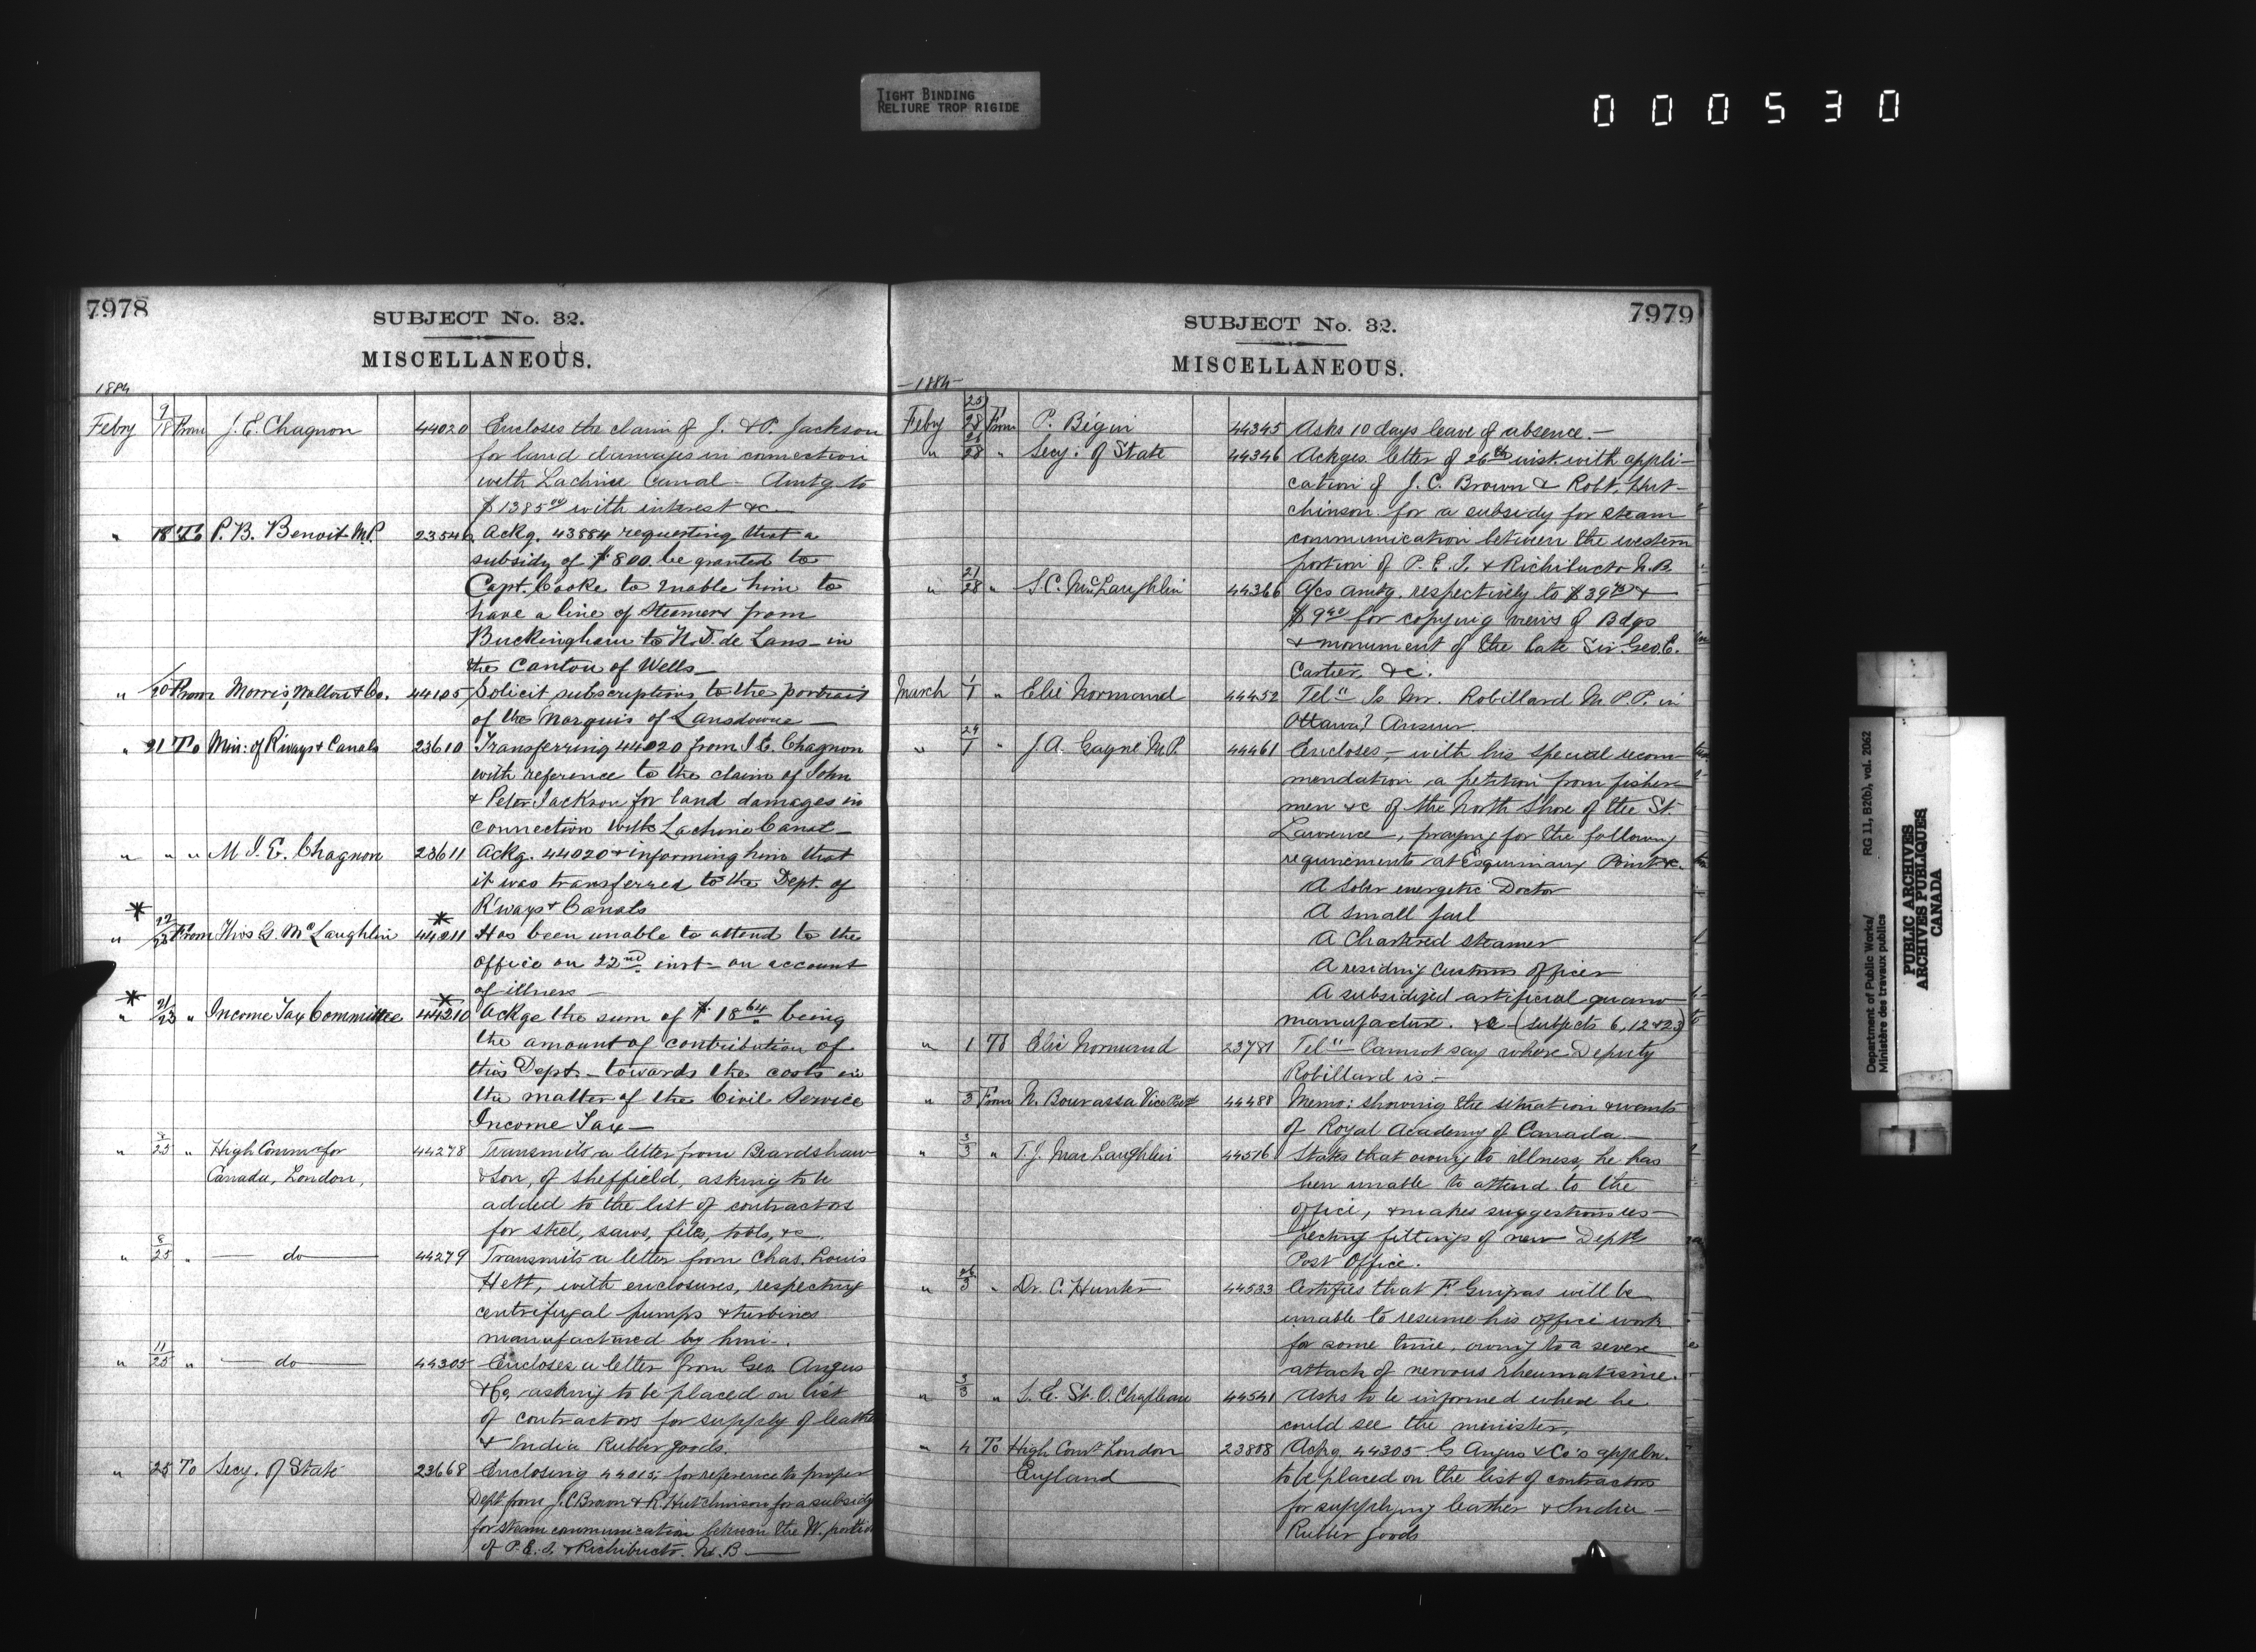 TIGHT BINDING
RELIURE TROP RIGIDE
000530
7978
SUBJECT No. 32.
MISCELLANEOUS.
1884
Febry 9/18 From J. E. Chagnon 44020 Encloses the claim of J. & P. Jackson
for land damages in connection
with Lachine Canal - Amtg to
$1385 00 with interest &c -
" 18 To P. B. Benoit M.P. 23546 Ackg. 43884 requesting that a
subsidy of $800. be granted to
Capt. Cooke to enable him to
have a line of Steamers from
Buckingham to N. D. de Laus - in
the Canton of Wells -
" /20 From Morris, & Co. 44105 Solicit subscriptions to the portrait
of the Marquis of Lansdowne -
" 21 To Min: of R'ways & Canals 23610 Transferring 44020 from J. E. Chagnon
with reference to the claim of John
& Peter Jackson for land damages in
connection with Lachine Canal -
" " " M J. E. Chagnon 23611 Ackg. 44020 & informing him that
it was transferred to the Dept. of
R'ways & Canals
* *
" 22/23 From Thos G. McLaughlin 44211 Has been unable to attend to the
office on 22nd. inst - on account
of illness -
* *
" 21/23 " Income Tax Committee 44210 Ackge the sum of $18 64 being
the amount of contribution of
this Dept. - towards the costs in
the matter of the Civil Service
Income Tax -
" 8/25 " High Commr for 44278 Transmits a letter from Beardshaw
Canada, London, & Son, of Sheffield, asking to be
added to the list of contractors
for steel, saws, files, tools, &c
" 8/25 " — do — 44279 Transmits a letter from Chas. Louis
Hett, with enclosures, respecting
centrifugal pumps & turbines
manufactured by him -.
" 11/25 " — do — 44305 Encloses a letter from Geo. Angus
& Co, asking to be placed on list
of contractors for supply of leather
& India Rubber goods.
" 25 To Secy. of State 23668 Enclosing 44015, for reference to proper
Dept from J. C Brown & R. Hutchinson for a subsidy
for steam communication between the W. portion
of P. E. I. & Richibucto. N. B -
7979
SUBJECT No. 32.
MISCELLANEOUS.
- 1884 -
Feby 25/28 From P. Bégin 44345 Asks 10 days leave of absence. -
" 26/28 " Secy: of State 44346 Ackges letter of 26th inst. with appli-
cation of J. C. Brown & Robt. Hut-
chinson for a subsidy for steam
communication between the western
portion of P. E. I. & Richibucto N. B.
" 21/28 " S. C. McLaughlin 44366 a/cs amtg. respectively to $39 &
$9 for copying views of Bdgs
& monument of the late Sir Geo. E.
Cartier, &c.
March 1/1 " Elie Normand 44452 Tel" Is Mr. Robillard M. P. P. in
Ottawa? Answer.
" 29/1 J. A. Gagné M.P. 44461 Encloses, - with his special recom-
mendation, a petition from fisher-
men &c of the North Shore of the St.
Lawrence -, praying for the following
requirements at Esquimaux Point &c.
A sober energetic Doctor
A small jail
A Chartered steamer
A residing Customs officer
A subsidized artificial guano
manufacture. &c - (subjects 6, 12 & 23)
" 1 To Elie Normand 23781 Tel" Cannot say where Deputy
Robillard is -
" 3 From N. Bourassa Vice Prest 44488 Memo: showing the situation & wants
of Royal Academy of Canada. -
" 3/3 " T. J. MacLaughlin 44516 States that owing to illness, he has
been unable to attend to the
office, & makes suggestions res-
pecting fittings of new Deptl
Post Office.
" 26/3 " Dr. C. Hunter 44533 Certifies that F. Gingras will be
unable to resume his office work
for some time, owing to a severe
attack of nervous rheumatisme.
" 3/3 " S. E. St. O. Chapleau 44541 Asks to be informed where he
could see the minister.
" 4 To High Comr London 23808 Ackg. 44305 G Angus & Co's appln.
England to be placed on the list of contractors
for supplying leather & India -
Rubber goods
Department of Public Works/
Ministère des travaux publics
RG 11, B2(b), vol. 2062
PUBLIC ARCHIVES
ARCHIVES PUBLIQUES
CANADA